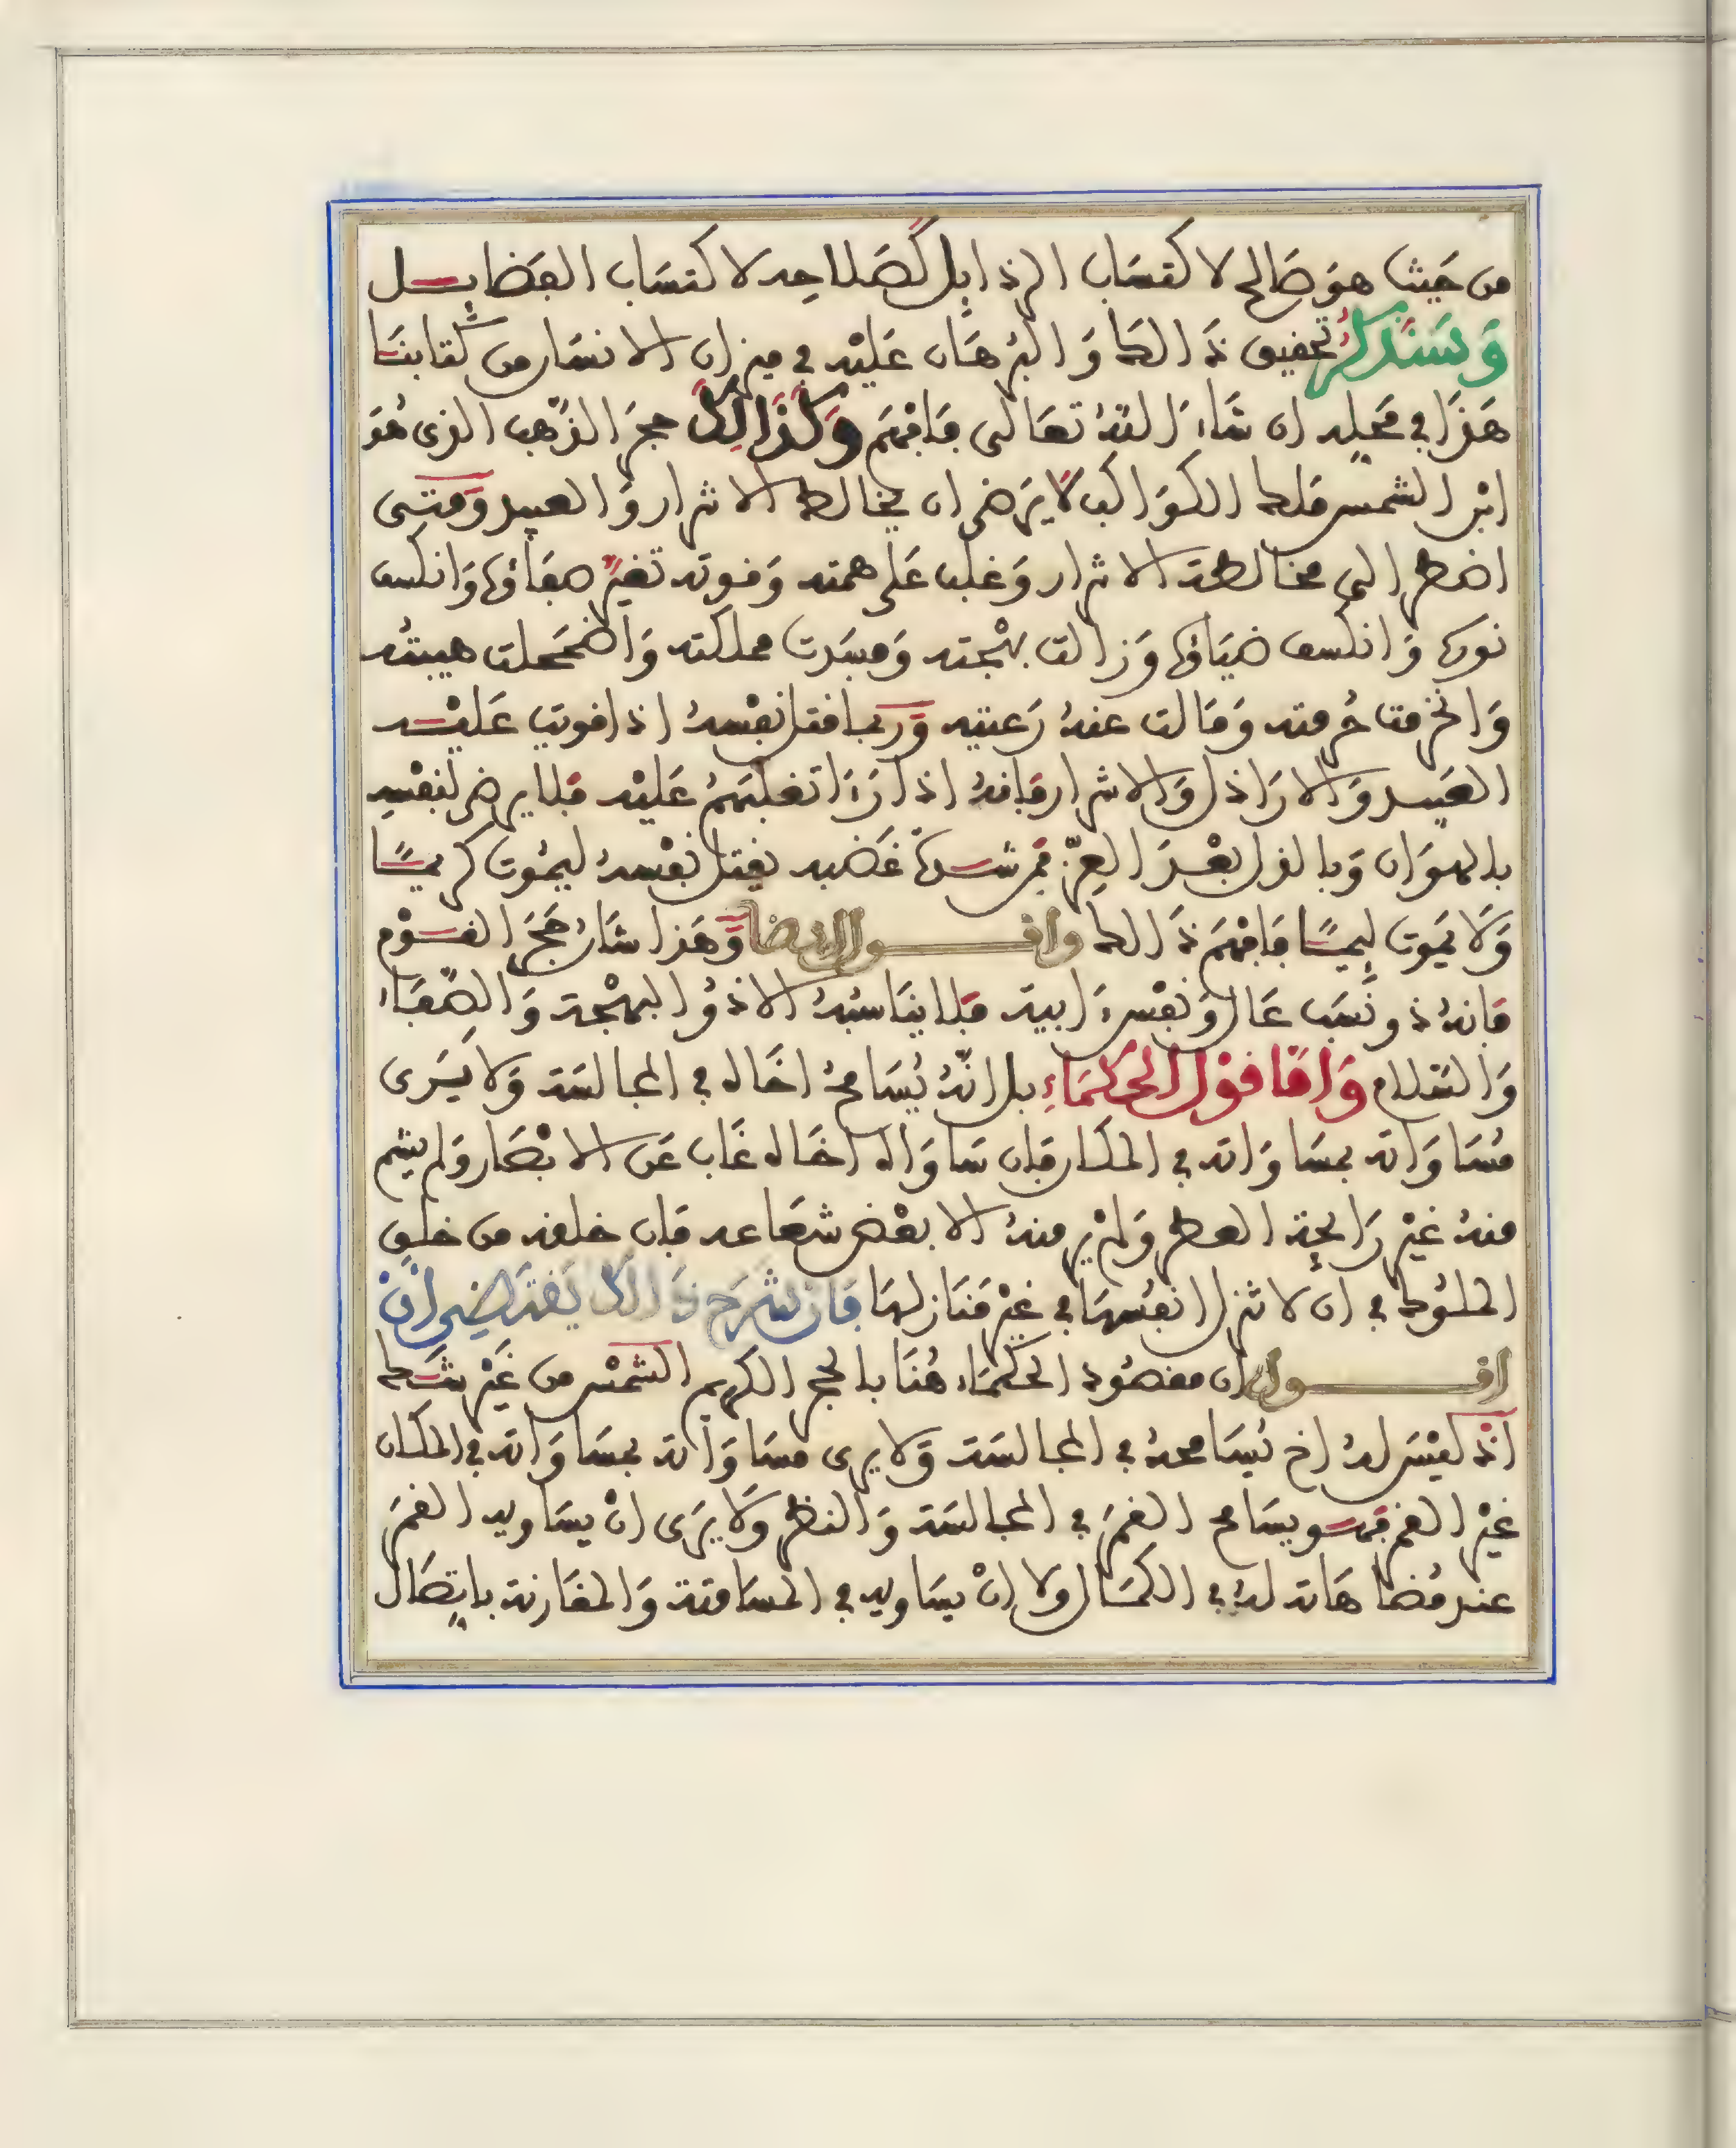 من حَيث هوَ صَالح لاكتسَاب الرذايل كصَلاحه لاكتسَاب الفضايل
وَسَنذكرُ تحقيق ذَالك وَالبرهَان عَليْه في ميزان الانسَان من كتابنَا
هَذَا في مَحَله ان شَاءَ اللهُ تعَالى فَافهَم وَكذَالِكَ حجرَ الذّهب الذى هُوَ
ابْن الشمس ملك الكوَاكب لَا يَرضى ان يخالط الاشرار وَالعبيد وَمَتى
اضطر الى مخالطة الاشرار وَغلب عَلى همته وَقوته تغيرَ صفاؤها وَانكسف
نورها وَانكسف ضيَاؤها وَزالت بهْجته وَفسَدت مملكته وَاضمَحلت هيبته
وَانخرقت حُرمته وَمَالت عنهُ رَعيته وَرُبما قتل نفْسهُ اذا قويت عَليْه
العبيد وَالارَاذل وَالاشرار فَانهُ اذا رَءَا تغلبَهمُ عَليْه فَلا يرضى لنفْسِه
بالهوَان وَبالذل بعْدَ العِزّ فمن شدة غَضبه يقتل نفْسهُ ليمُوت كريمًا
وَلَا يَموت لئيمًا فَافهَم ذَالك واقول ايضا وَّهَذا شَان حَجَر القوْم
فَانهُ ذو نَسَب عَال وَنفْس ءَابية فَلا ينَاسبُهُ الا ذوُ البهْجة وَالصّفَاء
وَالسَلام وَامَّا قوْل الحكمَاءِ بل انّهُ يُسَامحُ اخَاه في المجَالسَة وَلَا يَرَى
مُسَاوَاته بمسَاوَاته في المكَان فَان سَاوَاه اخَاه غَاب عَن الابْصَار وَلم يشم
منهُ غيْر رَايحة العطر وَلمْ ير منهُ الا بعْض شعَاعه فَان خلقه من خلق
الملوُك في ان لا تنزل انفُسهَا في غيْر مَنَازلهَا فَان شَرحَ ذَالك يَقتَضِي انْ
اقول ان مقصُود الحكمَاء هُنَا بالحجر الكريم الشمْس من غَيْر شَك
اذ ليْسَ لهُ اخ يُسَامحهُ في المجَالسَة وَلَا يرى مسَاوَاته بمسَاوَاته في المكَان
غيْر القمر فهو يسَامح القمَر في المجَالسَة وَالنظر وَلَا يَرَى انْ يسَاويه القمَر
عند مُضَاهَاته لهُ في الكمَال ولا انْ يسَاويه في المسَامتة وَالمقَارنة باتِصَال